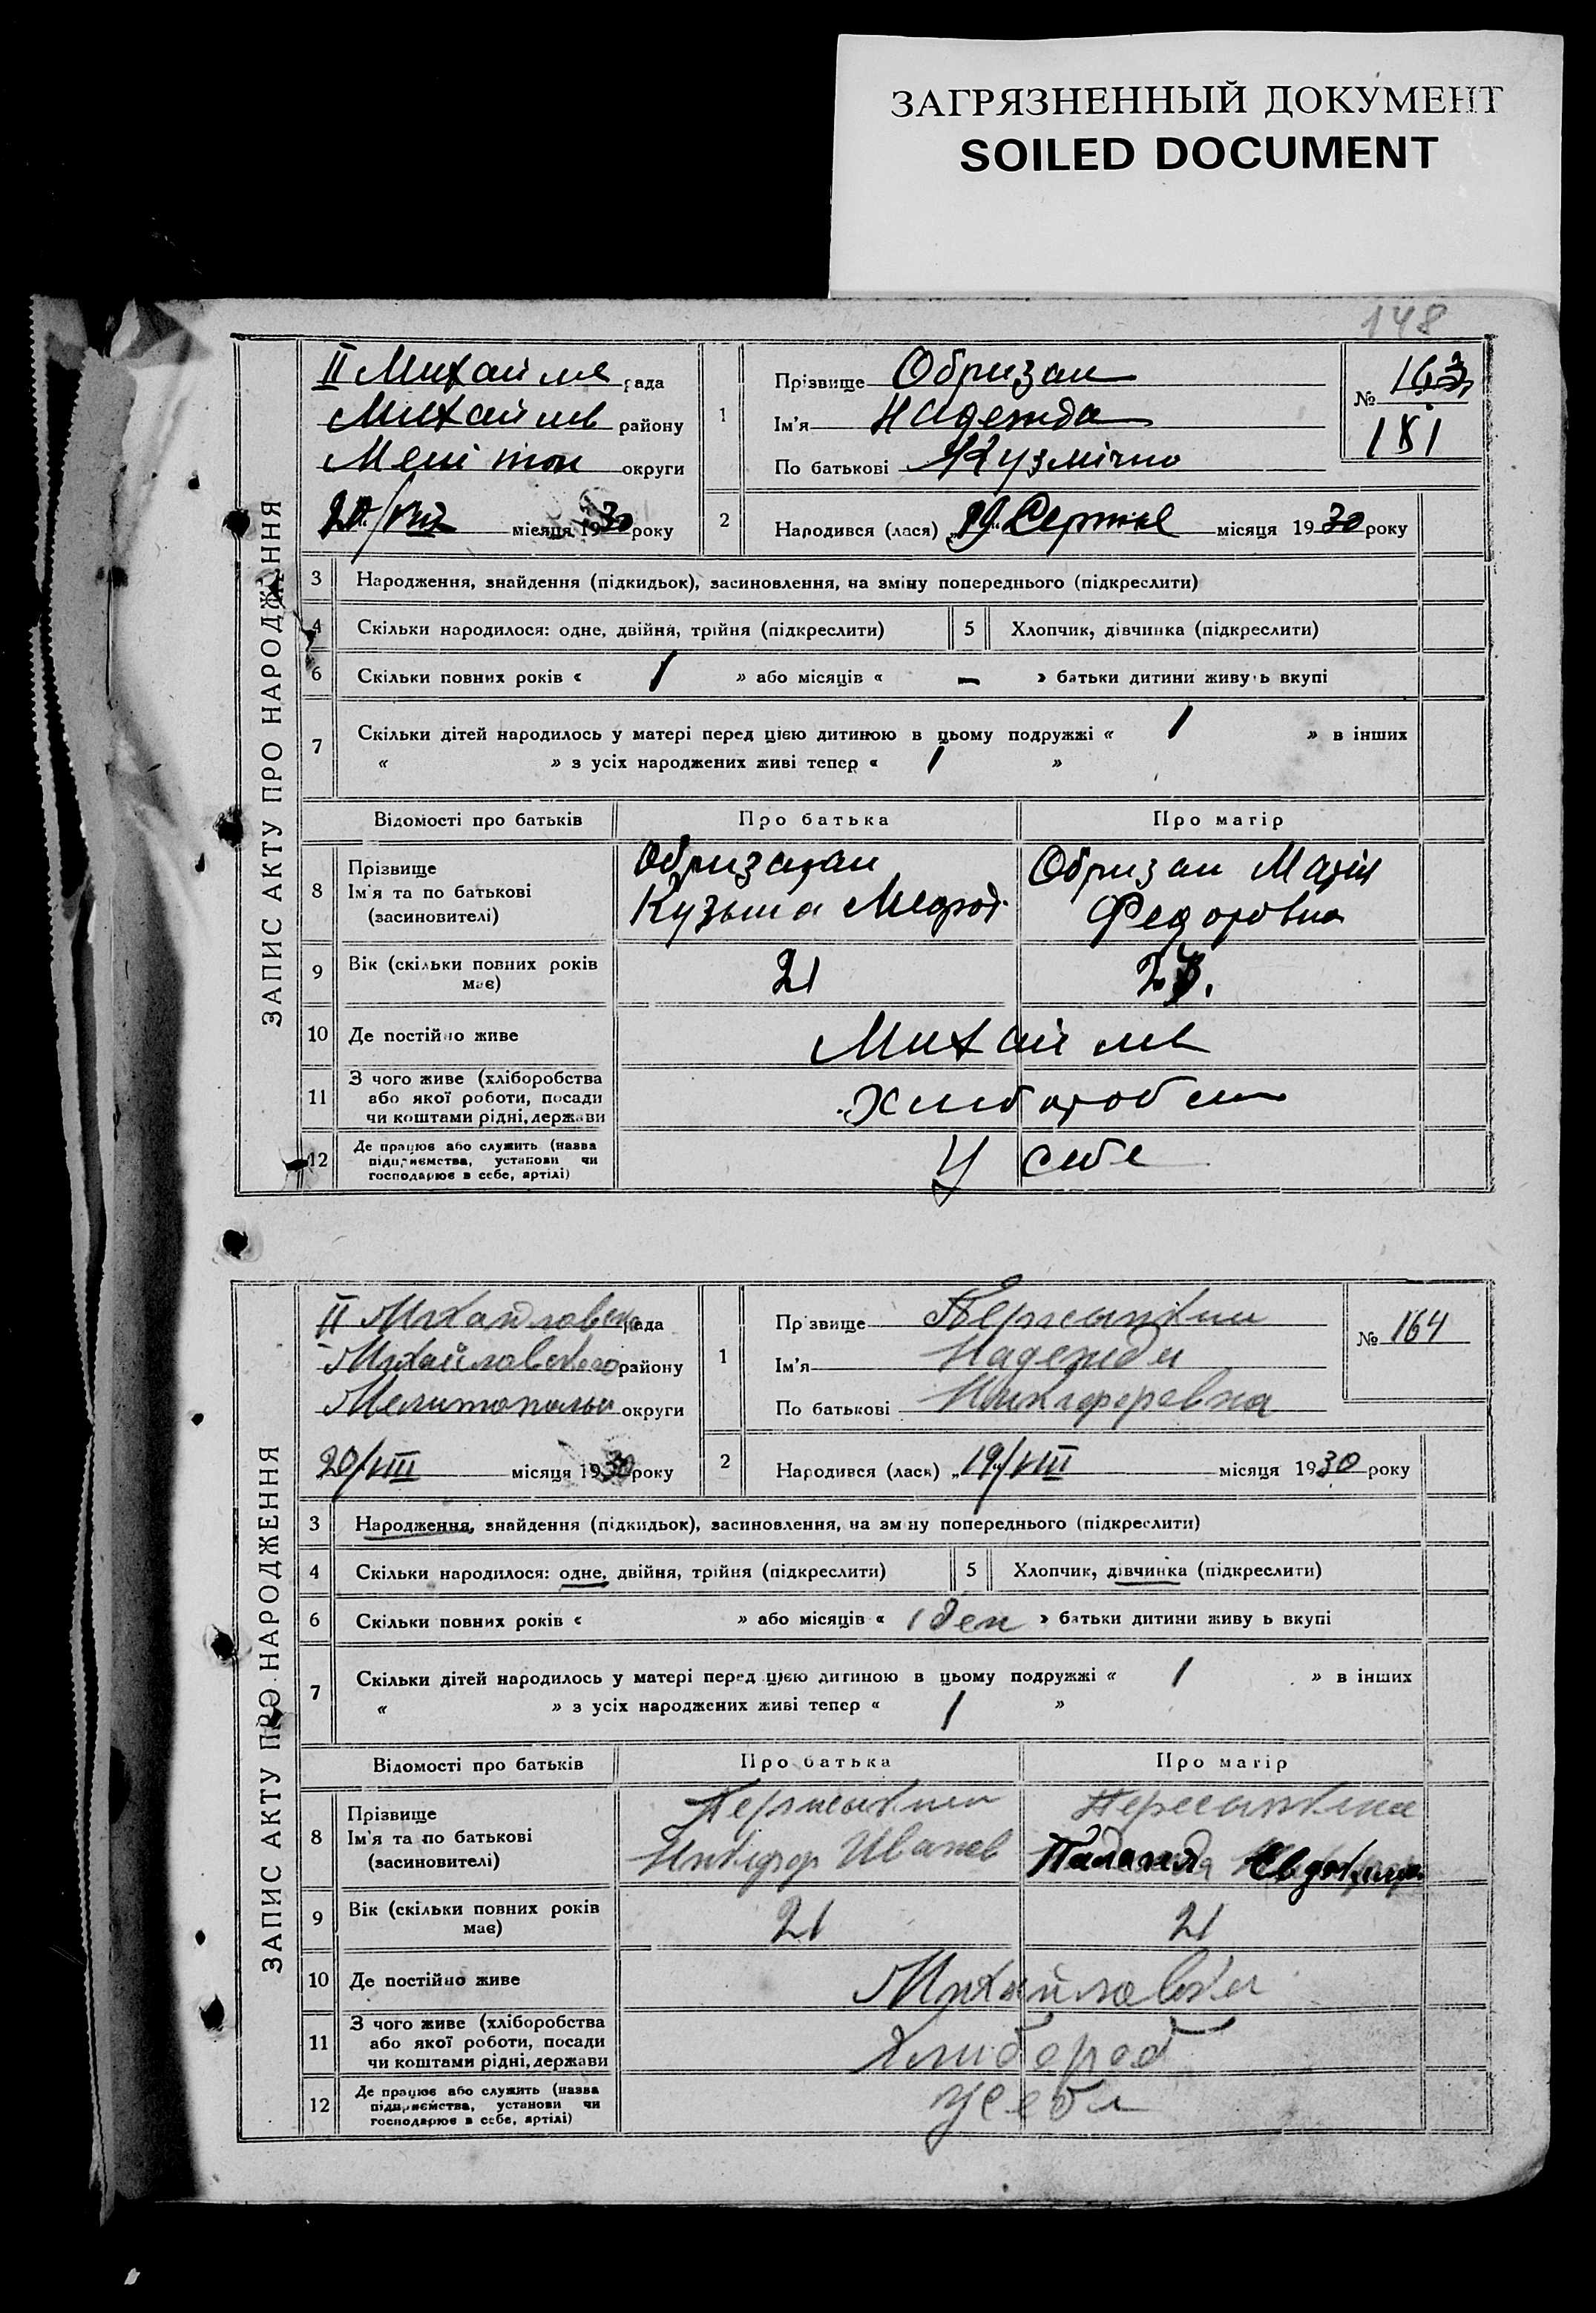 ЗАГРЯЗНЕННЫЙ ДОКУМЕНТ
SOILED DOCUMENT
148
ЗАПИС АКТУ ПРО НАРОДЖЕННЯ
II Михайлив рада
Михайлив району
Меліton округи
20/VIII місяця 1930 року
1
Прізвище Обризан
Ім'я Надежда
По батькові Кузмічно
№ 163
181
2 Народився (лася) „19" Серпне місяця 1930 року
3 Народження, знайдення (підкидьок), засиновлення, на зміну попереднього (підкреслити)
4 Скільки народилося: одне, двійня, трійня (підкреслити) 5 Хлопчик, дівчинка (підкреслити)
6 Скільки повних років « 1 » або місяців « – » батьки дитини живуть вкупі
7 Скільки дітей народилось у матері перед цією дитиною в цьому подружжі « 1 » в інших
« » з усіх народжених живі тепер « 1 »
Відомості про батьків Про батька Про матір
8 Прізвище
Ім'я та по батькові
(засиновителі)
Обризан
Кузьма
Обризан Марія
Федоровна
9 Вік (скільки повних років
має)
21
10 Де постійно живе Михайлив
11 З чого живе (хліборобства
або якої роботи, посади
чи коштами рідні, держави
12 Де працює або служить (назва
підприємства, установи чи
господарює в себе, артілі)
У себе
ЗАПИС АКТУ ПРО НАРОДЖЕННЯ
II Михайловська рада
Михайловского району
Мелитопольс округи
20/VIII місяця 1930 року
1
Прізвище
Ім'я Надежда
По батькові Никифоровна
№ 164
2 Народився (лася) „19/VIII місяця 1930 року
3 Народження, знайдення (підкидьок), засиновлення, на зміну попереднього (підкреслити)
4 Скільки народилося: одне, двійня, трійня (підкреслити) 5 Хлопчик, дівчинка (підкреслити)
6 Скільки повних років « » або місяців « 1 ден » батьки дитини живуть вкупі
7 Скільки дітей народилось у матері перед цією дитиною в цьому подружжі « 1 » в інших
« » з усіх народжених живі тепер « 1 »
Відомості про батьків Про батька Про матір
8 Прізвище
Ім'я та по батькові
(засиновителі)
Никифор Иванов
9 Вік (скільки повних років
має)
21 21
10 Де постійно живе Михайловка
11 З чого живе (хліборобства
або якої роботи, посади
чи коштами рідні, держави
Хлибороб
12 Де працює або служить (назва
підприємства, установи чи
господарює в себе, артілі)
У себя